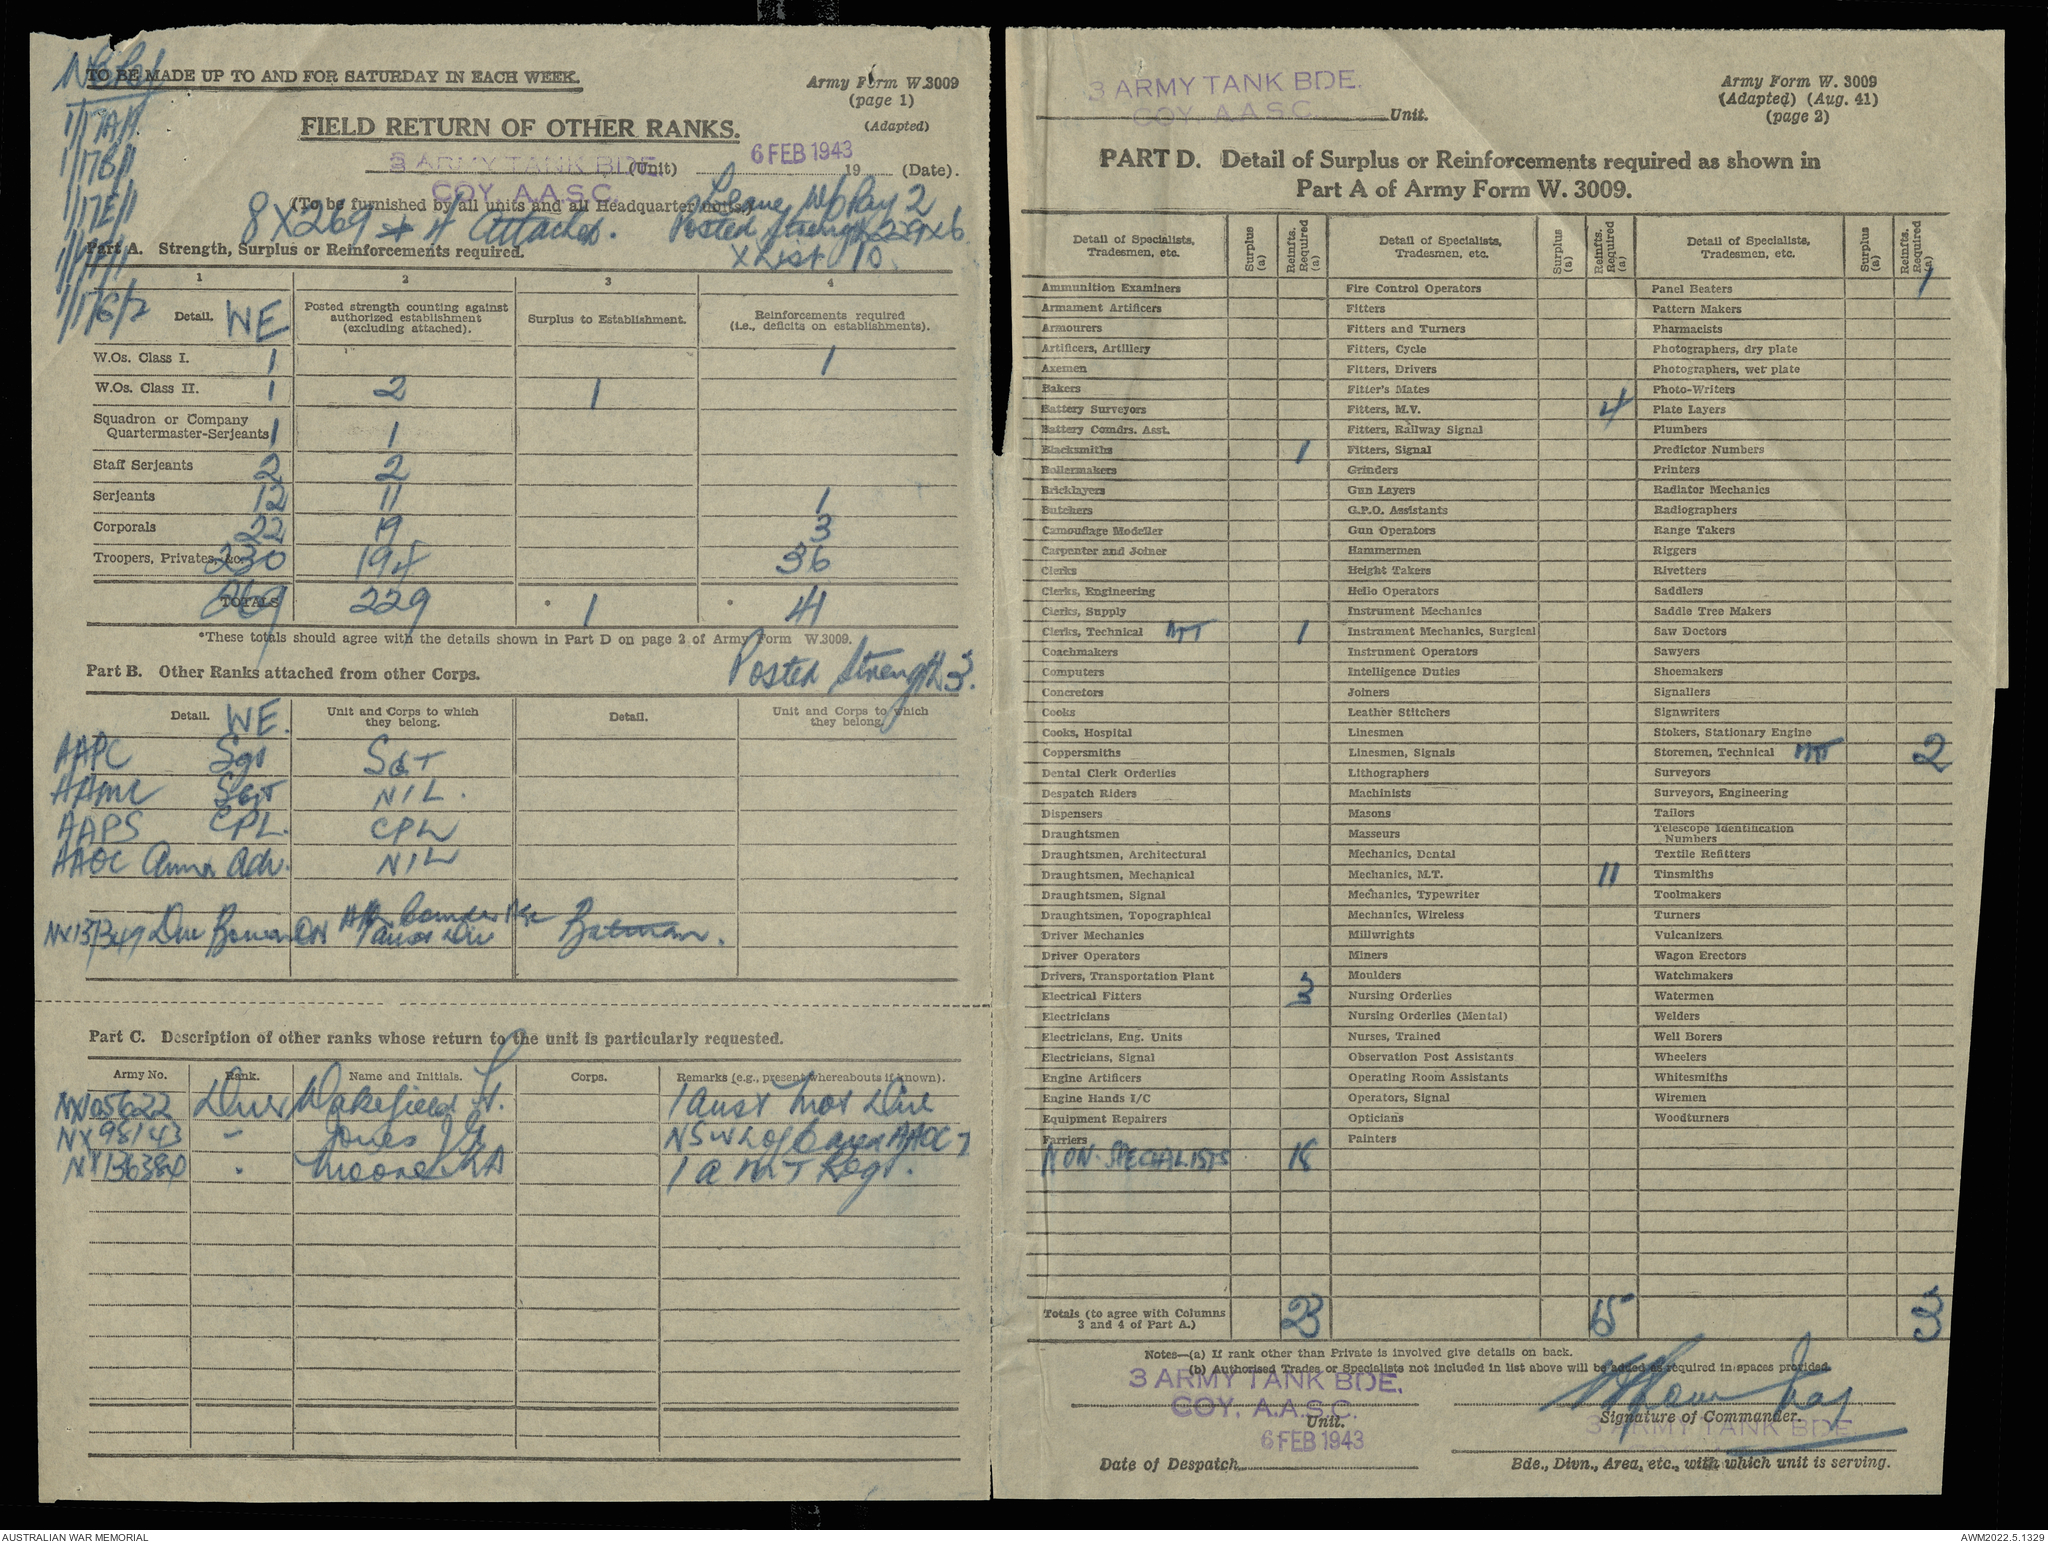 TO BE MADE UP TO AND FOR SATURDAY IN EACH WEEK.
Army Form W.3009
(page 1)
(Adapted)
FIELD RETURN OF OTHER RANKS.
3 ARMY TANK BDE (Unit) 6 FEB 1943 19 (Date).
COY. A.A.S.C.
(To be furnished by all units and all Headquarter units.)
Leave W/o Pay 2
8 X 269 + 4 Attached. Posted Strength 229 x 6
X List 10
1/17A/1
1/17B/1
1/17E/1
Part A. Strength, Surplus or Reinforcements required.
1 2 3 4
Detail. WE Posted strength counting against authorized establishment (excluding attached). Surplus to Establishment. Reinforcements required (i.e., deficits on establishments).
W.Os. Class I. 1 1
W.Os. Class II. 1 2 1
Squadron or Company
Quartermaster-Serjeants 1 1
Staff Serjeants 2 2
Serjeants 12 11 1
Corporals 22 19 3
Troopers, Privates, &c. 230 194 36
TOTALS 269 229 * 1 * 41
*These totals should agree with the details shown in Part D on page 2 of Army Form W.3009.
Posted Strength 3.
Part B. Other Ranks attached from other Corps.
Detail. WE. Unit and Corps to which they belong. Detail. Unit and Corps to which they belong.
AAPC Sgt SGT
AAMC SGT NIL.
AAPS CPL. CPL
AAOC NIL
NX137349 Dvr Batman.
Part C. Description of other ranks whose return to the unit is particularly requested.
Army No. Rank. Name and Initials. Corps. Remarks (e.g., present whereabouts if known).
NX105622 Dvr Wakefield H. 1 Aust Mot Div
NX98143 - Jones
NX136380 " Moore KA
Army Form W. 3009
(Adapted) (Aug. 41)
(page 2)
3 ARMY TANK BDE.
COY. A.A.S.C. Unit.
PART D. Detail of Surplus or Reinforcements required as shown in
Part A of Army Form W. 3009.
Detail of Specialists, Tradesmen, etc. Surplus (a) Reinfts. Required (a) Detail of Specialists, Tradesmen, etc. Surplus (a) Reinfts. Required (a) Detail of Specialists, Tradesmen, etc. Surplus (a) Reinfts. Required (a)
Ammunition Examiners Fire Control Operators Panel Beaters 1
Armament Artificers Fitters Pattern Makers
Armourers Fitters and Turners Pharmacists
Artificers, Artillery Fitters, Cycle Photographers, dry plate
Axemen Fitters, Drivers Photographers, wet plate
Bakers Fitter's Mates Photo-Writers
Battery Surveyors Fitters, M.V. 4 Plate Layers
Battery Comdrs. Asst. Fitters, Railway Signal Plumbers
Blacksmiths 1 Fitters, Signal Predictor Numbers
Boilermakers Grinders Printers
Bricklayers Gun Layers Radiator Mechanics
Butchers G.P.O. Assistants Radiographers
Camouflage Modeller Gun Operators Range Takers
Carpenter and Joiner Hammermen Riggers
Clerks Height Takers Rivetters
Clerks, Engineering Helio Operators Saddlers
Clerks, Supply Instrument Mechanics Saddle Tree Makers
Clerks, Technical MT 1 Instrument Mechanics, Surgical Saw Doctors
Coachmakers Instrument Operators Sawyers
Computers Intelligence Duties Shoemakers
Concretors Joiners Signallers
Cooks Leather Stitchers Signwriters
Cooks, Hospital Linesmen Stokers, Stationary Engine
Coppersmiths Linesmen, Signals Storemen, Technical MT 2
Dental Clerk Orderlies Lithographers Surveyors
Despatch Riders Machinists Surveyors, Engineering
Dispensers Masons Tailors
Draughtsmen Masseurs Telescope Identification Numbers
Draughtsmen, Architectural Mechanics, Dental Textile Refitters
Draughtsmen, Mechanical Mechanics, M.T. 11 Tinsmiths
Draughtsmen, Signal Mechanics, Typewriter Toolmakers
Draughtsmen, Topographical Mechanics, Wireless Turners
Driver Mechanics Millwrights Vulcanizers
Driver Operators Miners Wagon Erectors
Drivers, Transportation Plant Moulders Watchmakers
Electrical Fitters 3 Nursing Orderlies Watermen
Electricians Nursing Orderlies (Mental) Welders
Electricians, Eng. Units Nurses, Trained Well Borers
Electricians, Signal Observation Post Assistants Wheelers
Engine Artificers Operating Room Assistants Whitesmiths
Engine Hands I/C Operators, Signal Wiremen
Equipment Repairers Opticians Woodturners
Farriers Painters
NON-SPECIALISTS 18
Totals (to agree with Columns 3 and 4 of Part A.) 23 15 3
Notes—(a) If rank other than Private is involved give details on back.
(b) Authorised Trades or Specialists not included in list above will be added as required in spaces provided.
3 ARMY TANK BDE.
COY. A.A.S.C.
Unit.
Signature of Commander.
3 ARMY TANK BDE
6 FEB 1943
Date of Despatch
Bde., Divn., Area, etc., with which unit is serving.
AUSTRALIAN WAR MEMORIAL
AWM2022.5.1329